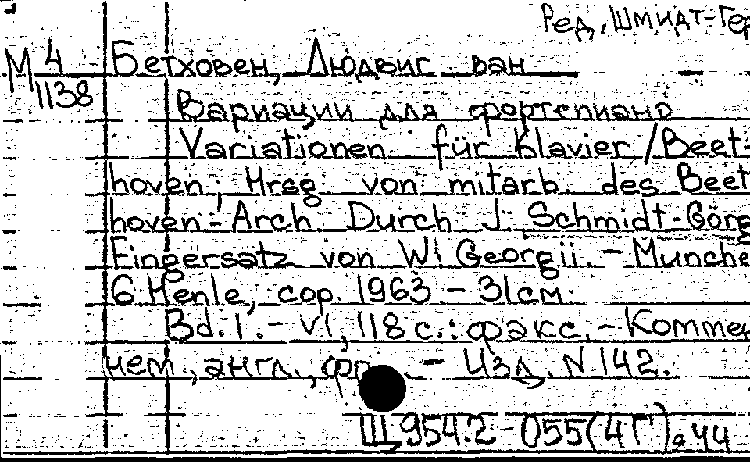 Ред. Шмидт-Гер
М 4 Бетховен, Людвиг ван
1138
Вариации для фортепиано
Variationen für Klavier / Beet-
hoven; Hrsg. von mitarb. des Beet
hoven-Arch. Durch J. Schmidt-Görg
Fingersatz von W. Georgii. – Munche
G. Henle, cop. 1963 – 31 см.
Bd. 1. – VI, 118 с.: факс. – Коммен
нем., англ., фр. – Изд. N 142.
Щ954.2-055(4Г).44